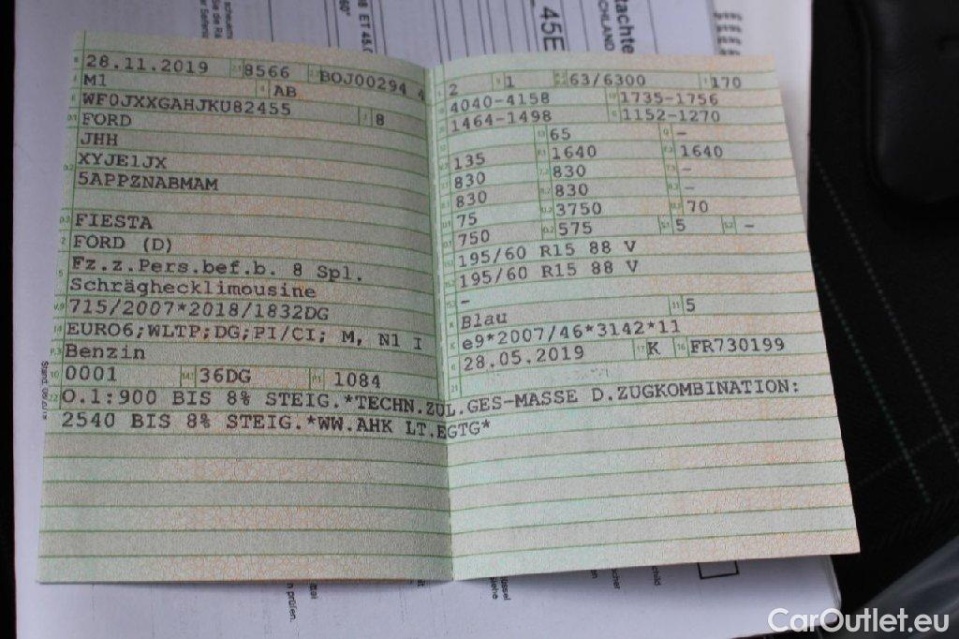 28.11.2019 8566 BOJ00294 4
M1 AB
WF0JXXGAHJKU82455 8
FORD
JHH
XYJE1JX
5APPZNABMAM
FIESTA
FORD (D)
Fz.z.Pers.bef.b. 8 Spl.
Schräghecklimousine
715/2007*2018/1832DG
EURO6;WLTP;DG;PI/CI; M, N1 I
Benzin
0001 36DG 1084
2 1 63/6300 170
4040-4158 1735-1756
1464-1498 1152-1270
65 -
135 1640 1640
830 830 -
830 830 -
75 3750 70
750 575 5 -
195/60 R15 88 V
195/60 R15 88 V
-
Blau 5
e9*2007/46*3142*11
28.05.2019 K FR730199
O.1:900 BIS 8% STEIG.*TECHN.ZUL.GES-MASSE D.ZUGKOMBINATION:
2540 BIS 8% STEIG.*WW.AHK LT.EGTG*
CarOutlet.eu